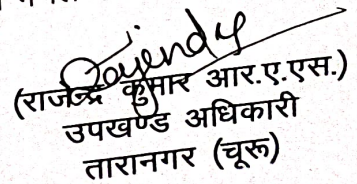 Rajendy
(राजेन्द्र कुमार आर.ए.एस.)
उपखण्ड अधिकारी
तारानगर (चूरू)